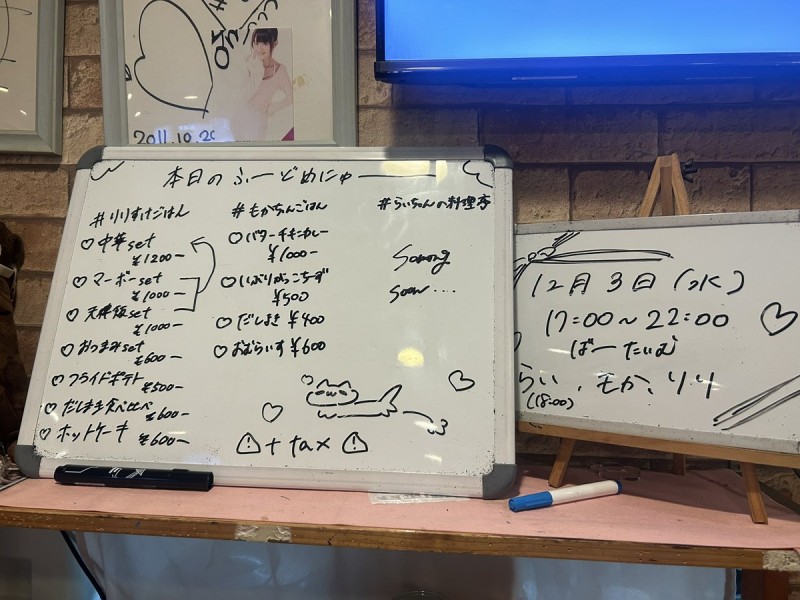 2011.10.20
本日のふーどめにゅー
#りりすけごはん
♡中華set
¥1200-
♡マーボーset
¥1000-
♡天津飯set
¥1000-
♡おつまみset
¥600-
♡フライドポテト
¥500-
♡だしまき食べ比べ
¥600-
♡ホットケーキ ¥600-
#もかちんごはん
♡バターチキンカレー
¥1000-
♡いぶりがっこちーず
¥500
♡だしまき ¥400
♡おむらいす ¥600
#らいちゃんの料理亭
Soon...
⚠+tax⚠
12月3日(水)
17:00~22:00
ばーたいむ
らい、もか、りり
(18:00)